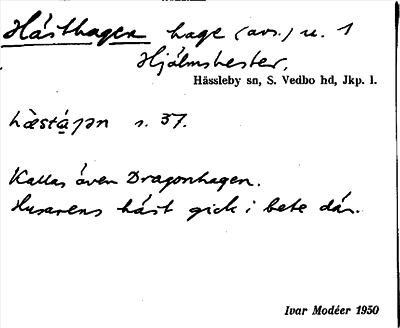 Hästhagen hage (avs.) u. 1
Hjälmseter,
Hässleby sn, S. Vedbo hd, Jkp. l.
s. 37.
Kallas även Dragonhagen.
Husarens häst gick i bete där.
Ivar Modéer 1950